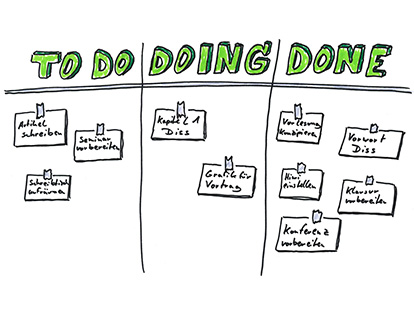 TO DO
DOING
DONE
Artikel
schreiben
Seminar
vorbereiten
Schreibtisch
aufräumen
Kapitel 1
Diss
Grafik für
Vortrag
Vorlesung
konzipieren
Vorwort
Diss
Hiwi
einstellen
Klausur
vorbereiten
Konferenz
vorbereiten